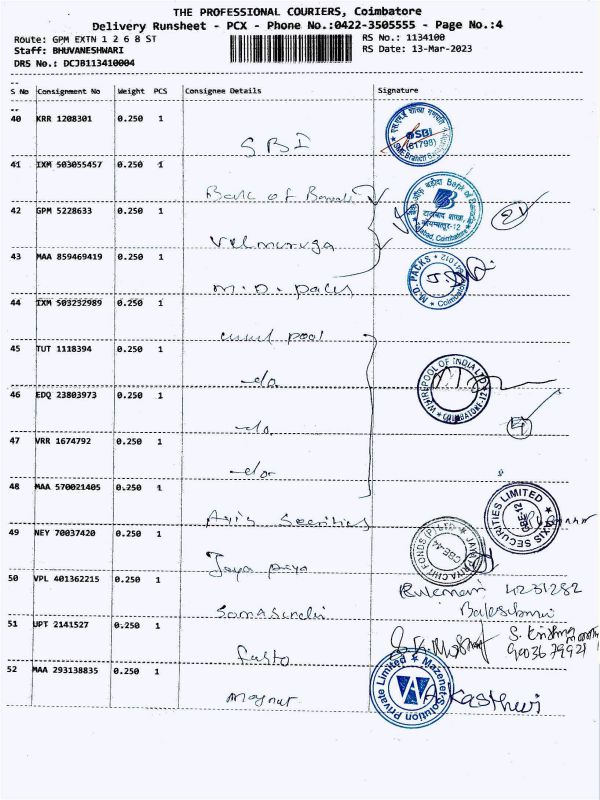 THE PROFESSIONAL COURIERS, Coimbatore
Delivery Runsheet - PCX - Phone No.:0422-3505555 - Page No.:4
Route: GPM EXTN 1 2 6 8 ST
RS No.: 1134100
Staff: BHUVANESHWARI
RS Date: 13-Mar-2023
DRS No.: DCJB113410004
S No Consignment No Weight PCS Consignee Details Signature
40 KRR 1208301 0.250 1
SBI
SBI
(61798)
41 IXM 503055457 0.250 1
Bank of
Bank of
कोयम्बत्तूर-12
Coimbatore
42 GPM 5228633 0.250 1
Velmuruga
43 MAA 859469419 0.250 1
M.D. Packs
M.D. PACKS
Coimbatore
44 IXM 503232989 0.250 1
pool
45 TUT 1118394 0.250 1
-do-
WHIRLPOOL OF INDIA LTD
COIMBATORE-12
46 EDQ 23803973 0.250 1
-do-
4
47 VRR 1674792 0.250 1
-do-
48 MAA 570021405 0.250 1
Axis Securities
AXIS SECURITIES LIMITED
CBE-12
49 NEY 70037420 0.250 1
Jaya priya
JAYAPRIYA CHIT FONDS (P) LTD
CBE-44
50 VPL 401362215 0.250 1
Rukmani 4231282
51 UPT 2141527 0.250 1
S. Krishna
52 MAA 293138835 0.250 1
Mazenet Solution Private Limited
A. Kasthuri